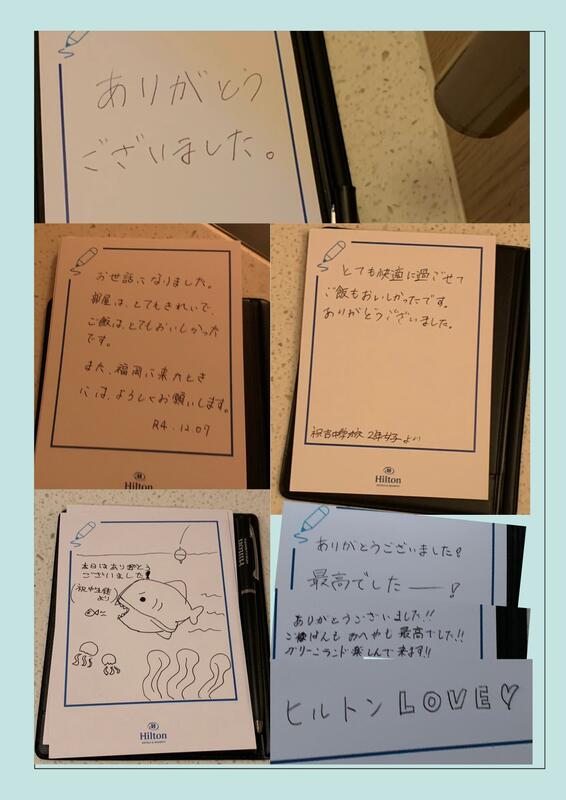 ありがとう
ございました。
お世話になりました。
部屋は、とてもきれいで、
ご飯は、とてもおいしかった
です。
また、福岡に来たとき
には、よろしくお願いします。
R4.12.07
Hilton
とても快適に過ごせて
ご飯もおいしかったです。
ありがとうございました。
祝吉中学校 2年女子より
Hilton
HOTELS & RESORTS
本日はありがとう
ございました!
(祝中生徒
より)
Hilton
HOTELS & RESORTS
ありがとうございました!
最高でしたー!
ありがとうございました!!
ごはんも おへやも 最高でした!!
グリーンランド楽しんで来ます!!
ヒルトン LOVE♡